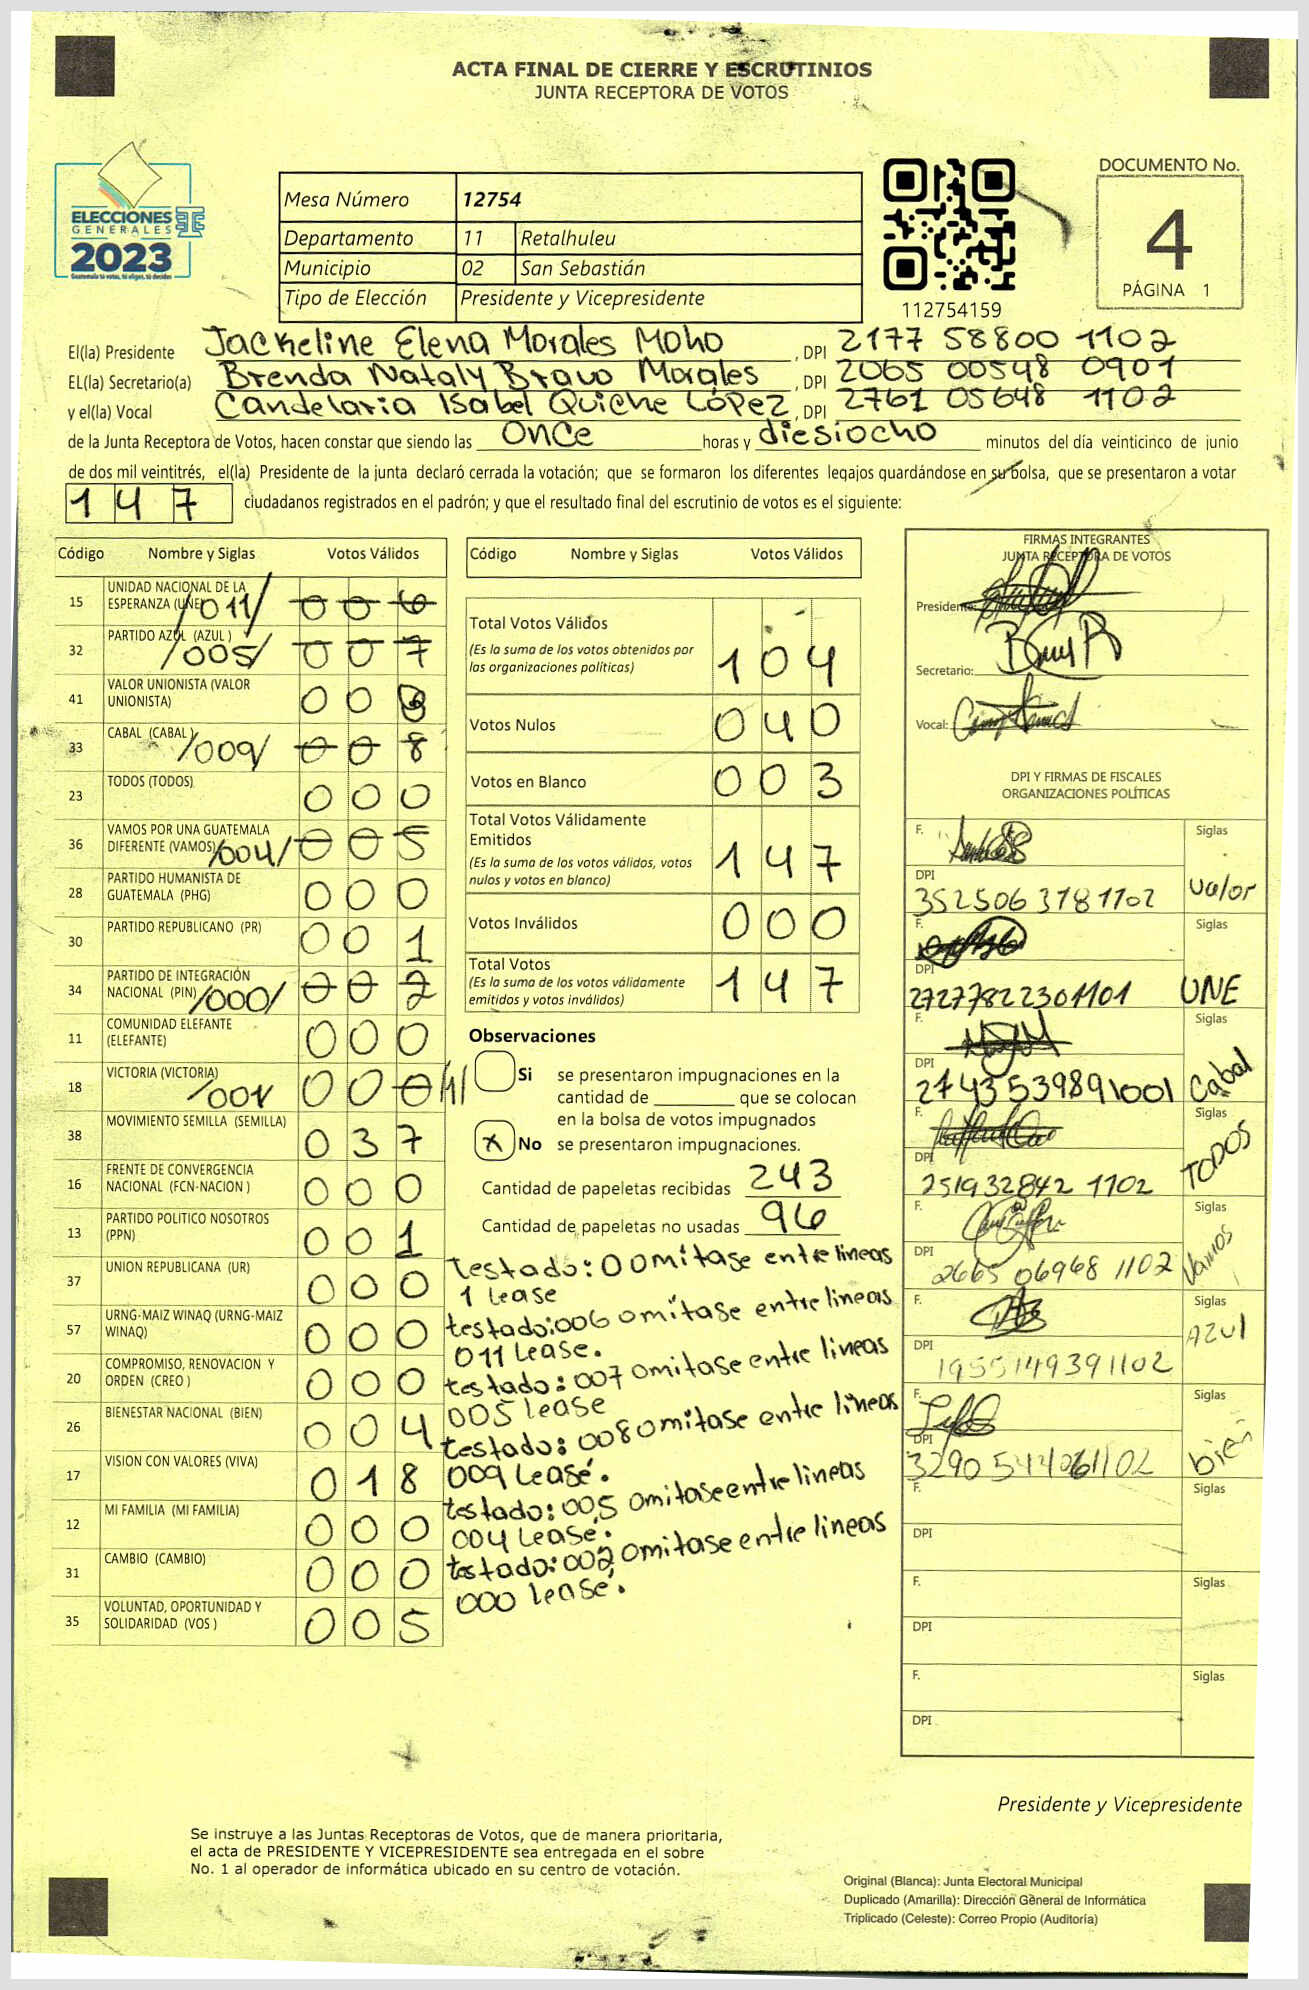 ACTA FINAL DE CIERRE Y ESCRUTINIOS
JUNTA RECEPTORA DE VOTOS
ELECCIONES
GENERALES
2023
Guatemala tú votas, tú eliges, tú decides
Mesa Número 12754
Departamento 11 Retalhuleu
Municipio 02 San Sebastián
Tipo de Elección Presidente y Vicepresidente
112754159
DOCUMENTO No.
4
PÁGINA 1
El(la) Presidente Jackeline Elena Morales Moho, DPI 2177 58800 1102
EL(la) Secretario(a) Brenda Nataly Bravo Morales, DPI 2065 00548 0901
y el(la) Vocal Candelaria Isabel Quiche López, DPI 2761 05648 1102
de la Junta Receptora de Votos, hacen constar que siendo las once horas y diesiocho minutos del día veinticinco de junio
de dos mil veintitrés, el(la) Presidente de la junta declaró cerrada la votación; que se formaron los diferentes legajos guardándose en su bolsa, que se presentaron a votar
147 ciudadanos registrados en el padrón; y que el resultado final del escrutinio de votos es el siguiente:
Código Nombre y Siglas Votos Válidos
15 UNIDAD NACIONAL DE LA ESPERANZA (UNE) /011/ 006
32 PARTIDO AZUL (AZUL ) /005/ 007
41 VALOR UNIONISTA (VALOR UNIONISTA) 00
33 CABAL (CABAL ) /009/ 008
23 TODOS (TODOS) 000
36 VAMOS POR UNA GUATEMALA DIFERENTE (VAMOS) /004/ 005
28 PARTIDO HUMANISTA DE GUATEMALA (PHG) 000
30 PARTIDO REPUBLICANO (PR) 001
34 PARTIDO DE INTEGRACIÓN NACIONAL (PIN) /000/ 002
11 COMUNIDAD ELEFANTE (ELEFANTE) 000
18 VICTORIA (VICTORIA) /001 000 /1/
38 MOVIMIENTO SEMILLA (SEMILLA) 037
16 FRENTE DE CONVERGENCIA NACIONAL (FCN-NACION ) 000
13 PARTIDO POLITICO NOSOTROS (PPN) 001
37 UNION REPUBLICANA (UR) 000
57 URNG-MAIZ WINAQ (URNG-MAIZ WINAQ) 000
20 COMPROMISO, RENOVACION Y ORDEN (CREO ) 000
26 BIENESTAR NACIONAL (BIEN) 004
17 VISION CON VALORES (VIVA) 018
12 MI FAMILIA (MI FAMILIA) 000
31 CAMBIO (CAMBIO) 000
35 VOLUNTAD, OPORTUNIDAD Y SOLIDARIDAD (VOS ) 005
Código Nombre y Siglas Votos Válidos
Total Votos Válidos 104
(Es la suma de los votos obtenidos por
las organizaciones políticas)
Votos Nulos 040
Votos en Blanco 003
Total Votos Válidamente
Emitidos 147
(Es la suma de los votos válidos, votos
nulos y votos en blanco)
Votos Inválidos 000
Total Votos 147
(Es la suma de los votos válidamente
emitidos y votos inválidos)
Observaciones
Si se presentaron impugnaciones en la
cantidad de ________ que se colocan
en la bolsa de votos impugnados
x No se presentaron impugnaciones.
Cantidad de papeletas recibidas 243
Cantidad de papeletas no usadas 96
testado: 0 omitase entre lineas
1 lease
testado: 006 omitase entre lineas
011 lease.
testado: 007 omitase entre lineas
005 lease
testado: 008 omitase entre lineas
009 lease.
testado: 005 omitase entre lineas
004 lease.
testado: 002 omitase entre lineas
000 lease.
FIRMAS INTEGRANTES
JUNTA RECEPTORA DE VOTOS
Presidente:
Secretario:
Vocal:
DPI Y FIRMAS DE FISCALES
ORGANIZACIONES POLÍTICAS
F. Siglas
DPI 3525063781102 Valor
F. Siglas
DPI 27277822301101 UNE
F. Siglas
DPI 2743539891001 Cabal
F. Siglas
DPI 251932842 1102 TODOS
F. Siglas
DPI 2665 06968 1102 Vamos
F. Siglas
DPI 1955149391102 AZUL
F. Siglas
DPI bien
F. Siglas
DPI
F. Siglas
DPI
F. Siglas
DPI
Presidente y Vicepresidente
Se instruye a las Juntas Receptoras de Votos, que de manera prioritaria,
el acta de PRESIDENTE Y VICEPRESIDENTE sea entregada en el sobre
No. 1 al operador de informática ubicado en su centro de votación.
Original (Blanca): Junta Electoral Municipal
Duplicado (Amarilla): Dirección General de Informática
Triplicado (Celeste): Correo Propio (Auditoría)